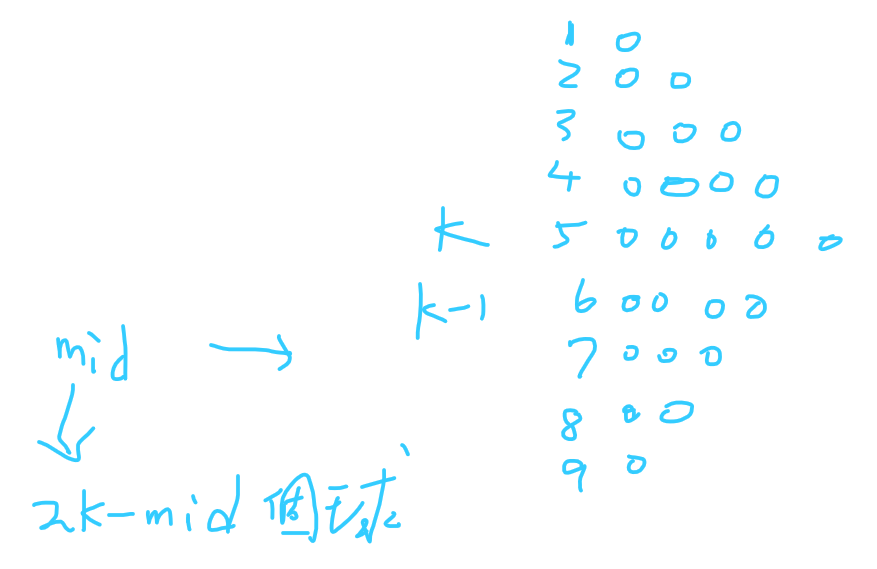 1 o
2 o o
3 o o o
4 o o o o
k 5 o o o o o
k-1 6 o o o o
mid → 7 o o o
8 o o
9 o
2k-mid 個球